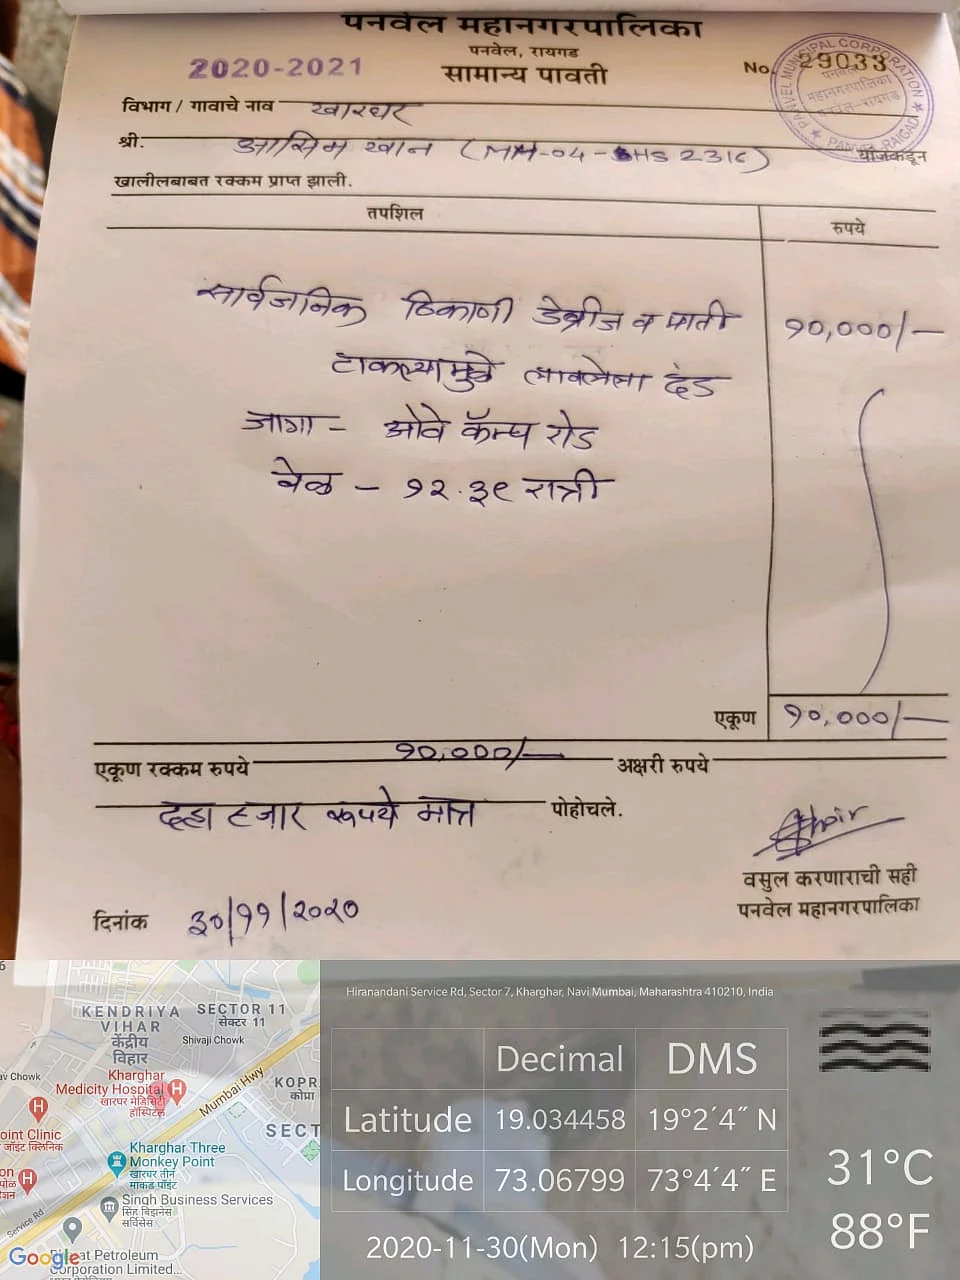 पनवेल महानगरपालिका
पनवेल, रायगड
2020-2021
सामान्य पावती
No. 29033
PANVEL MUNICIPAL CORPORATION
पनवेल
महानगरपालिका
पनवेल-रायगड
★ PANVEL-RAIGAD ★
विभाग / गावाचे नाव खारघर
श्री. आसिम खान (MH-04-HS 2316) यांजकडून
खालीलबाबत रक्कम प्राप्त झाली.
तपशिल रुपये
सार्वजनिक ठिकाणी डेब्रीज व माती १०,०००/-
टाकल्यामुळे लावलेला दंड
जागा - ओवे कॅम्प रोड
वेळ - १२.३९ रात्री
एकूण १०,०००/-
एकूण रक्कम रुपये १०,०००/- अक्षरी रुपये
दहा हजार रूपये मात्र पोहोचले.
वसुल करणाराची सही
पनवेल महानगरपालिका
दिनांक ३०/११/२०२०
Hiranandani Service Rd, Sector 7, Kharghar, Navi Mumbai, Maharashtra 410210, India
Decimal DMS
Latitude 19.034458 19°2´4˝ N
Longitude 73.06799 73°4´4˝ E
2020-11-30(Mon) 12:15(pm)
31°C
88°F
KENDRIYA
VIHAR
केंद्रीय
विहार
SECTOR 11
सेक्टर 11
Shivaji Chowk
av Chowk
Kharghar
Medicity Hospital
खारघर मेडिसिटी
हॉस्पिटल
Mumbai Hwy
KOPR
कोप्रा
oint Clinic
जॉइंट क्लिनिक
SECT
Kharghar Three
Monkey Point
खारघर तीन
माकड पॉइंट
Singh Business Services
सिंह बिझनेस
सर्विसेस
Service Rd
Google
Petroleum
Corporation Limited...